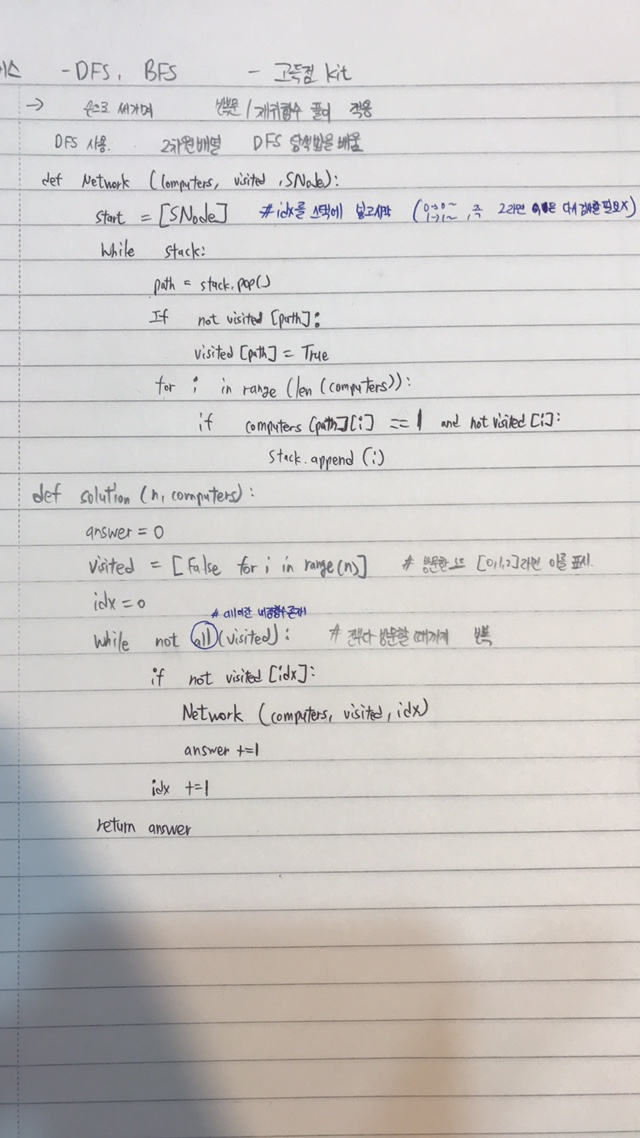 스 - DFS, BFS - 고득점 kit
→ 손으로 써가며 반복문 / 재귀함수 풀이 적용
DFS 사용. 2차원배열 DFS 탐색법을 배움
def Network (computers, visited, SNode):
start = [SNode] # idx를 스택에 넣고시작 (0→0~ 1→1~, 즉 2라면 은 다시 검사할 필요X)
While stack:
path = stack.pop()
If not visited [path]:
visited [path] = True
for i in range (len (computers)):
if computers [path][i] == 1 and not visited [i]:
stack.append (i)
def solution (n, computers):
answer = 0
visited = [False for i in range(n)] # 방문한 노드 [0,1,2]라면 이를 표시.
idx = 0
# all이란 내장함수존재
while not all (visited): # 전부다 방문할 때까지 반복
if not visited [idx]:
Network (computers, visited, idx)
answer +=1
idx +=1
return answer